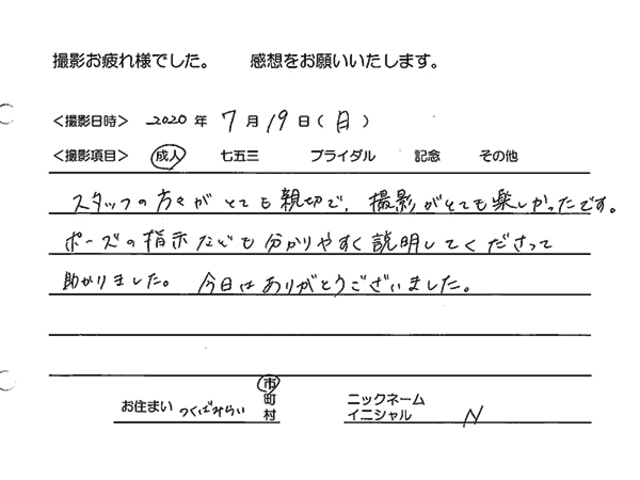 撮影お疲れ様でした。 感想をお願いいたします。
<撮影日時> 2020 年 7 月 19 日(日)
<撮影項目> 成人 七五三 ブライダル 記念 その他
スタッフの方々がとても親切で、撮影がとても楽しかったです。
ポーズの指示なども分かりやすく説明してくださって
助かりました。今日はありがとうございました。
お住まい つくばみらい 市町村
ニックネーム
イニシャル N